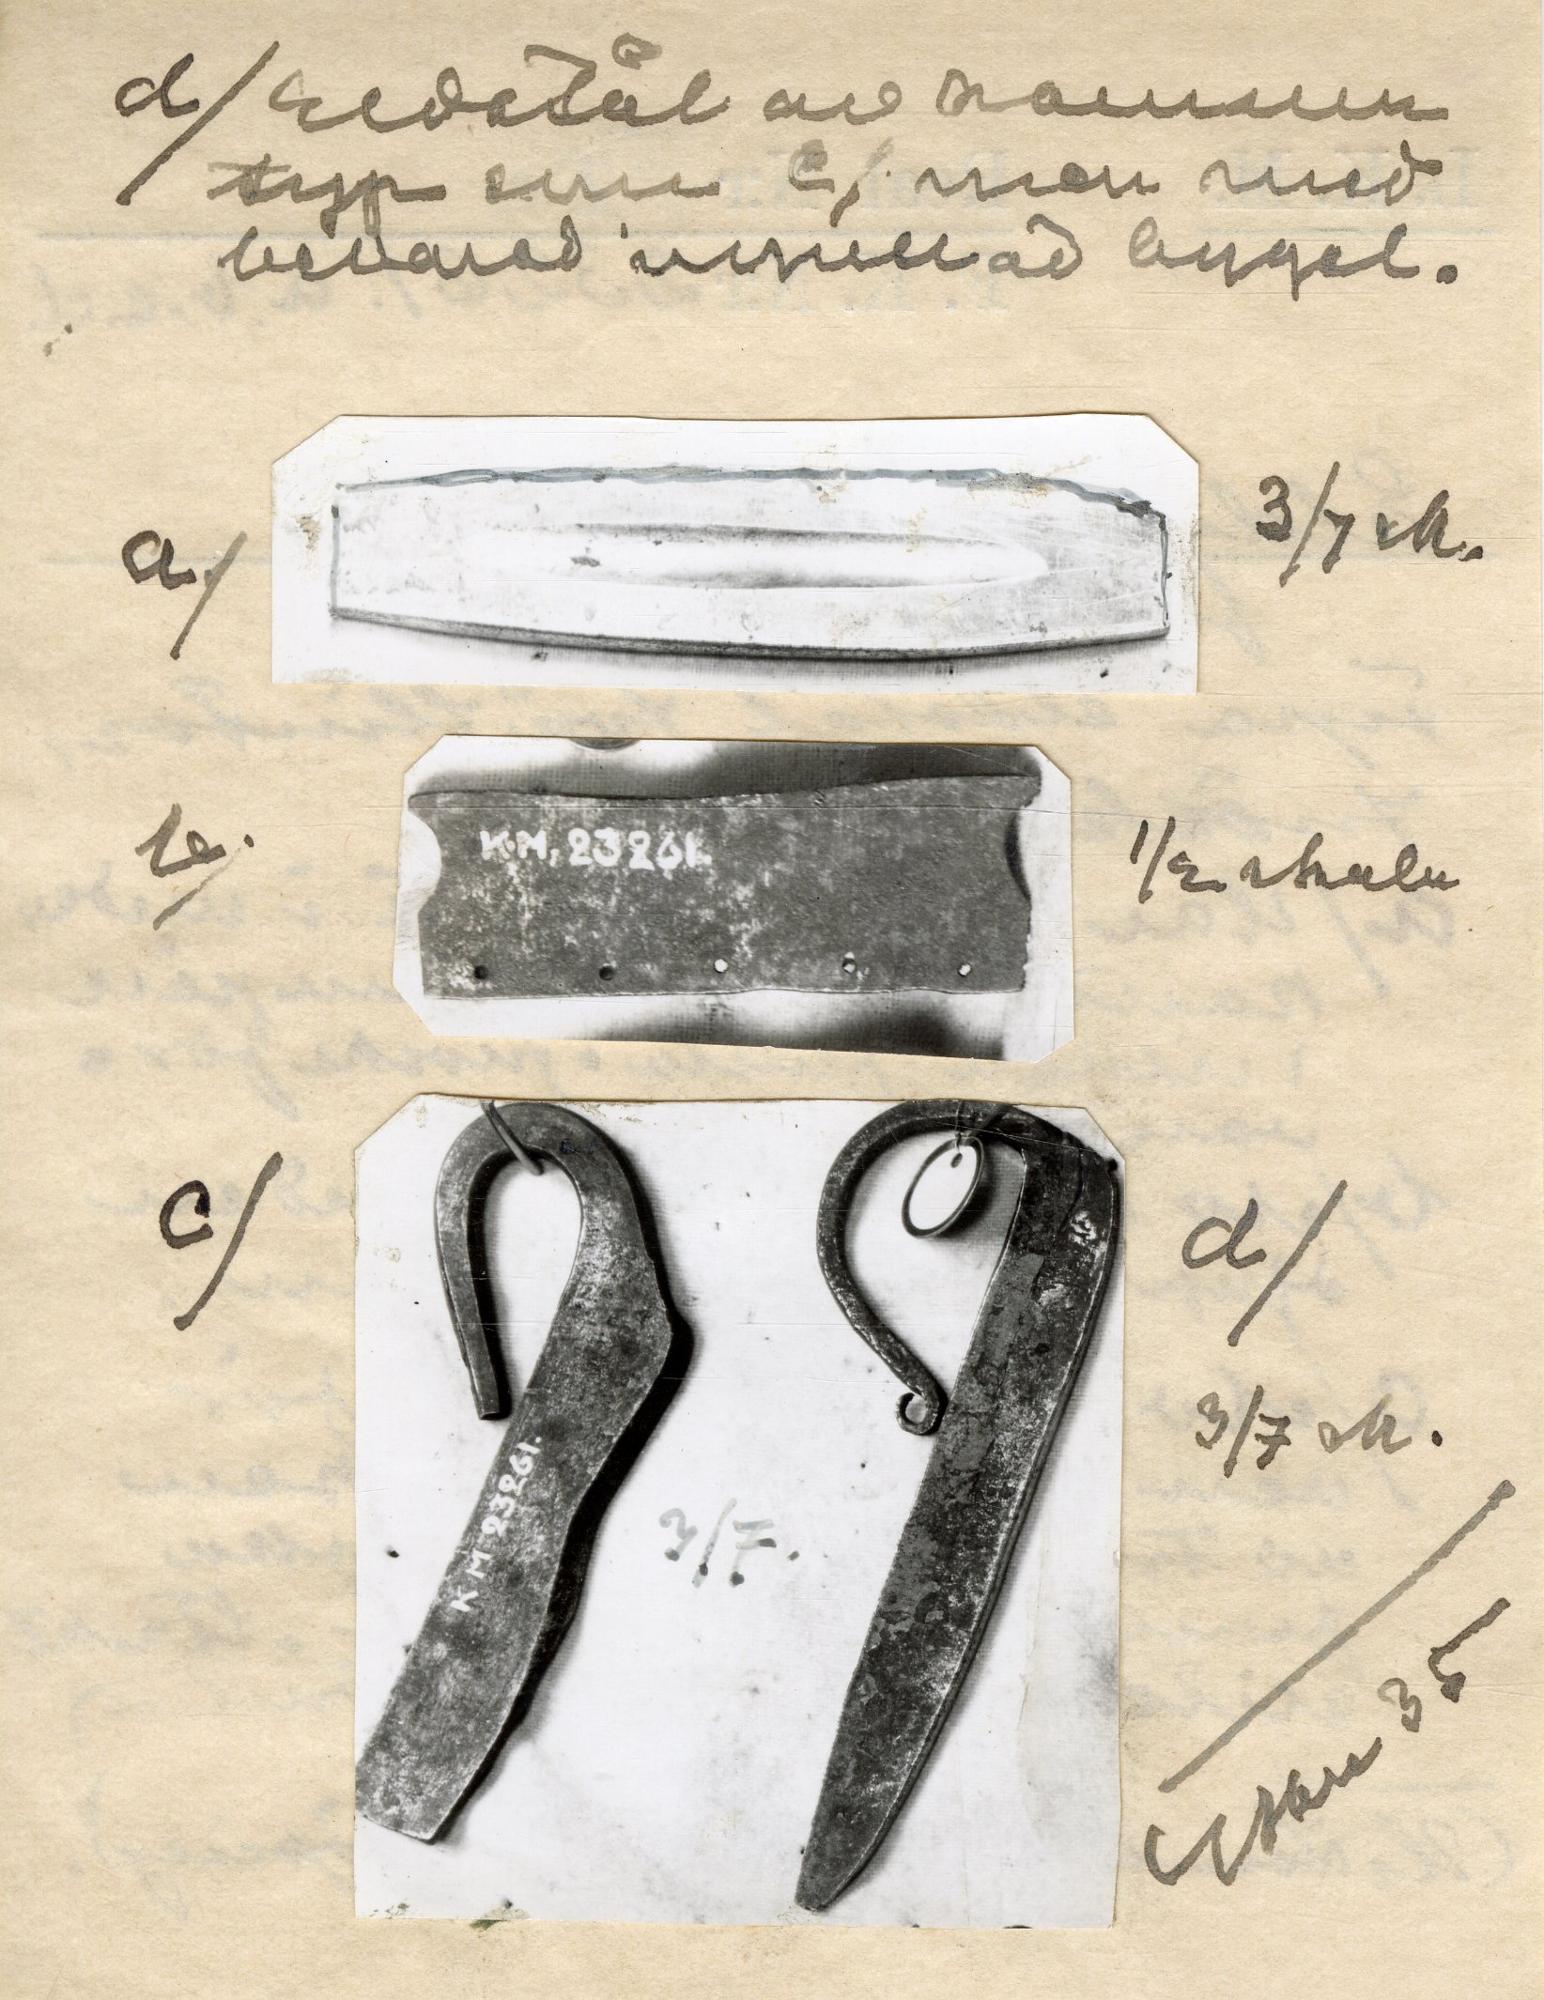 d/ Eldstål av samma
typ som c/, men med
bevarad uppullad bygel.
a/
3/7 sk.
b/
K.M. 23261.
1/2 skala
c/
d/
3/7 sk.
KM 23261.
3/7.
35